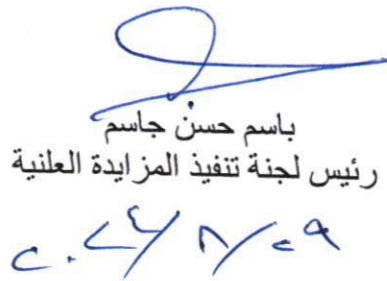 باسم حسن جاسم
رئيس لجنة تنفيذ المزايدة العلنية
٢٠٢٤/٨/٢٩